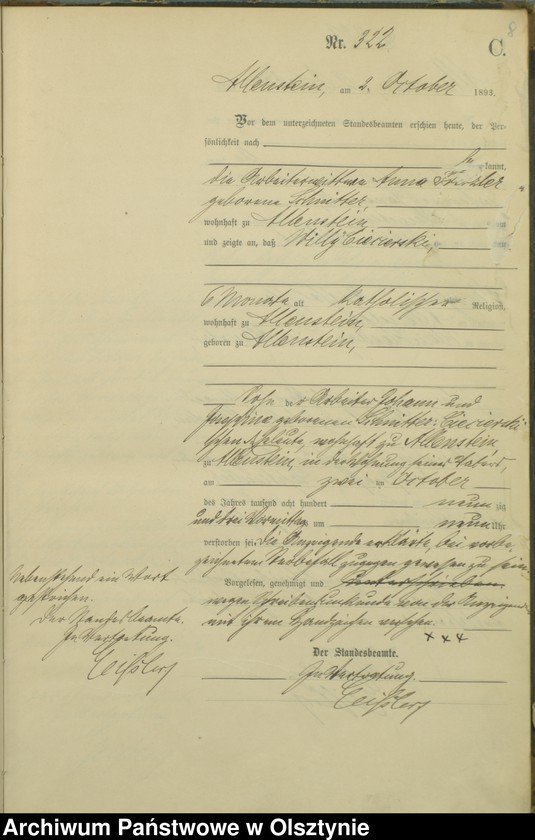 8
Nr. 322.
C.
Allenstein, am 2. October 1893.
Vor dem unterzeichneten Standesbeamten erschien heute, der Per-
sönlichkeit nach
be kannt,
die Arbeiterwittwe Anna
geborene Schnitter,
wohnhaft zu Allenstein
und zeigte an, daß Willy Ciecierski,
6 Monate alt katholischer Religion,
wohnhaft zu Allenstein,
geboren zu Allenstein,
Sohn der Arbeiter Johann und
Josephine geborenen Schnitter-Ciecierski-
schen Eheleute, wohnhaft zu Allenstein
zu Allenstein, in der Wohnung seines Vaters,
am zwei ten October
des Jahres tausend acht hundert neun zig
und drei Vormittags um neun Uhr
verstorben sei. Die Anzeigende erklärte, bei vorbe-
zeichnetem Sterbefall zugegen gewesen zu sein.
Vorgelesen, genehmigt und unterschrieben
wegen Schreibensunkunde von der Anzeigenden
mit ihrem Handzeichen versehen.
+++
Nebenstehend ein Wort
gestrichen.
Der Standesbeamte.
In Vertretung.
Der Standesbeamte.
In Vertretung.
Archiwum Państwowe w Olsztynie